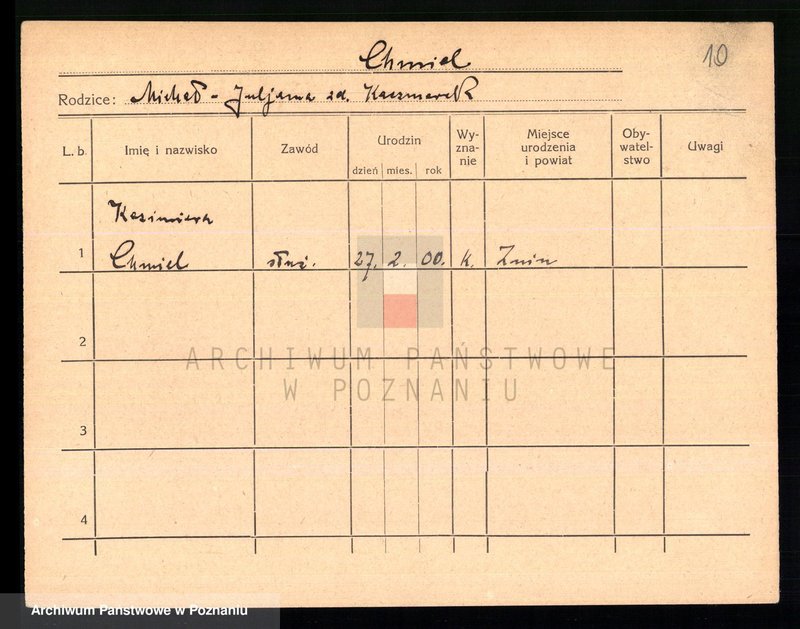 Chmiel
10
Rodzice: Michał - Juljanna zd. Kaczmarek
L. b. Imię i nazwisko Zawód Urodzin dzień mies. rok Wy- zna- nie Miejsce urodzenia i powiat Oby- watel- stwo Uwagi
Kazimiera
1 Chmiel służ. 27. 2. 00. k. Żnin
2
3
4
ARCHIWUM PAŃSTWOWE
W POZNANIU
Archiwum Państwowe w Poznaniu